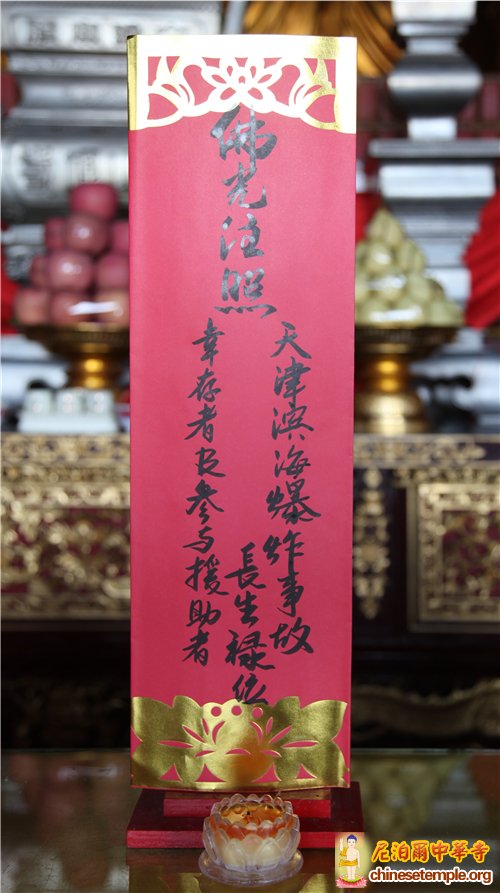 佛光注照
天津濱海爆炸事故
幸存者及參与援助者
長生禄位
尼泊爾中華寺
chinesetemple.org